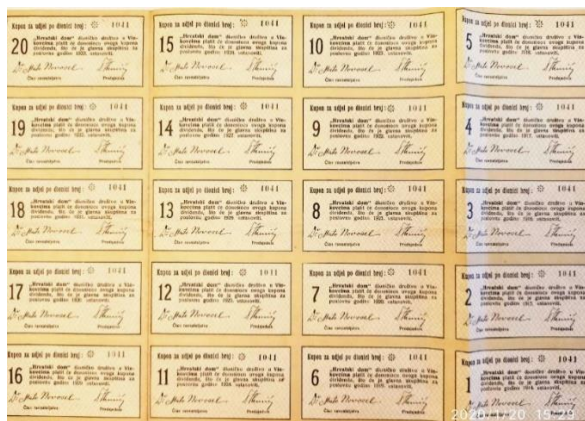 Kupon za udjel po dionici broj: 1041
20 „Hrvatski dom” dioničko društvo u Vin-
kovcima platit će donosiocu ovoga kupona
dividendu, što će je glavna skupština za
poslovnu godinu ustanoviti.
Član ravnateljstva Predsjednik
Kupon za udjel po dionici broj: 1041
15 „Hrvatski dom” dioničko društvo u Vin-
kovcima platit će donosiocu ovoga kupona
dividendu, što će je glavna skupština za
poslovnu godinu ustanoviti.
Član ravnateljstva Predsjednik
Kupon za udjel po dionici broj: 1041
10 „Hrvatski dom” dioničko društvo u Vin-
kovcima platit će donosiocu ovoga kupona
dividendu, što će je glavna skupština za
poslovnu godinu ustanoviti.
Član ravnateljstva Predsjednik
Kupon za udjel po dionici broj: 1041
5 „Hrvatski dom” dioničko društvo u Vin-
kovcima platit će donosiocu ovoga kupona
dividendu, što će je glavna skupština za
poslovnu godinu ustanoviti.
Član ravnateljstva Predsjednik
Kupon za udjel po dionici broj: 1041
19 „Hrvatski dom” dioničko društvo u Vin-
kovcima platit će donosiocu ovoga kupona
dividendu, što će je glavna skupština za
poslovnu godinu ustanoviti.
Član ravnateljstva Predsjednik
Kupon za udjel po dionici broj: 1041
14 „Hrvatski dom” dioničko društvo u Vin-
kovcima platit će donosiocu ovoga kupona
dividendu, što će je glavna skupština za
poslovnu godinu ustanoviti.
Član ravnateljstva Predsjednik
Kupon za udjel po dionici broj: 1041
9 „Hrvatski dom” dioničko društvo u Vin-
kovcima platit će donosiocu ovoga kupona
dividendu, što će je glavna skupština za
poslovnu godinu ustanoviti.
Član ravnateljstva Predsjednik
Kupon za udjel po dionici broj: 1041
4 „Hrvatski dom” dioničko društvo u Vin-
kovcima platit će donosiocu ovoga kupona
dividendu, što će je glavna skupština za
poslovnu godinu ustanoviti.
Član ravnateljstva Predsjednik
Kupon za udjel po dionici broj: 1041
18 „Hrvatski dom” dioničko društvo u Vin-
kovcima platit će donosiocu ovoga kupona
dividendu, što će je glavna skupština za
poslovnu godinu ustanoviti.
Član ravnateljstva Predsjednik
Kupon za udjel po dionici broj: 1041
13 „Hrvatski dom” dioničko društvo u Vin-
kovcima platit će donosiocu ovoga kupona
dividendu, što će je glavna skupština za
poslovnu godinu ustanoviti.
Član ravnateljstva Predsjednik
Kupon za udjel po dionici broj: 1041
8 „Hrvatski dom” dioničko društvo u Vin-
kovcima platit će donosiocu ovoga kupona
dividendu, što će je glavna skupština za
poslovnu godinu ustanoviti.
Član ravnateljstva Predsjednik
Kupon za udjel po dionici broj: 1041
3 „Hrvatski dom” dioničko društvo u Vin-
kovcima platit će donosiocu ovoga kupona
dividendu, što će je glavna skupština za
poslovnu godinu ustanoviti.
Član ravnateljstva Predsjednik
Kupon za udjel po dionici broj: 1041
17 „Hrvatski dom” dioničko društvo u Vin-
kovcima platit će donosiocu ovoga kupona
dividendu, što će je glavna skupština za
poslovnu godinu ustanoviti.
Član ravnateljstva Predsjednik
Kupon za udjel po dionici broj: 1041
12 „Hrvatski dom” dioničko društvo u Vin-
kovcima platit će donosiocu ovoga kupona
dividendu, što će je glavna skupština za
poslovnu godinu ustanoviti.
Član ravnateljstva Predsjednik
Kupon za udjel po dionici broj: 1041
7 „Hrvatski dom” dioničko društvo u Vin-
kovcima platit će donosiocu ovoga kupona
dividendu, što će je glavna skupština za
poslovnu godinu ustanoviti.
Član ravnateljstva Predsjednik
Kupon za udjel po dionici broj: 1041
2 „Hrvatski dom” dioničko društvo u Vin-
kovcima platit će donosiocu ovoga kupona
dividendu, što će je glavna skupština za
poslovnu godinu ustanoviti.
Član ravnateljstva Predsjednik
Kupon za udjel po dionici broj: 1041
16 „Hrvatski dom” dioničko društvo u Vin-
kovcima platit će donosiocu ovoga kupona
dividendu, što će je glavna skupština za
poslovnu godinu ustanoviti.
Član ravnateljstva Predsjednik
Kupon za udjel po dionici broj: 1041
11 „Hrvatski dom” dioničko društvo u Vin-
kovcima platit će donosiocu ovoga kupona
dividendu, što će je glavna skupština za
poslovnu godinu ustanoviti.
Član ravnateljstva Predsjednik
Kupon za udjel po dionici broj: 1041
6 „Hrvatski dom” dioničko društvo u Vin-
kovcima platit će donosiocu ovoga kupona
dividendu, što će je glavna skupština za
poslovnu godinu ustanoviti.
Član ravnateljstva Predsjednik
Kupon za udjel po dionici broj: 1041
1 „Hrvatski dom” dioničko društvo u Vin-
kovcima platit će donosiocu ovoga kupona
dividendu, što će je glavna skupština za
poslovnu godinu ustanoviti.
2020/1/20 15:29